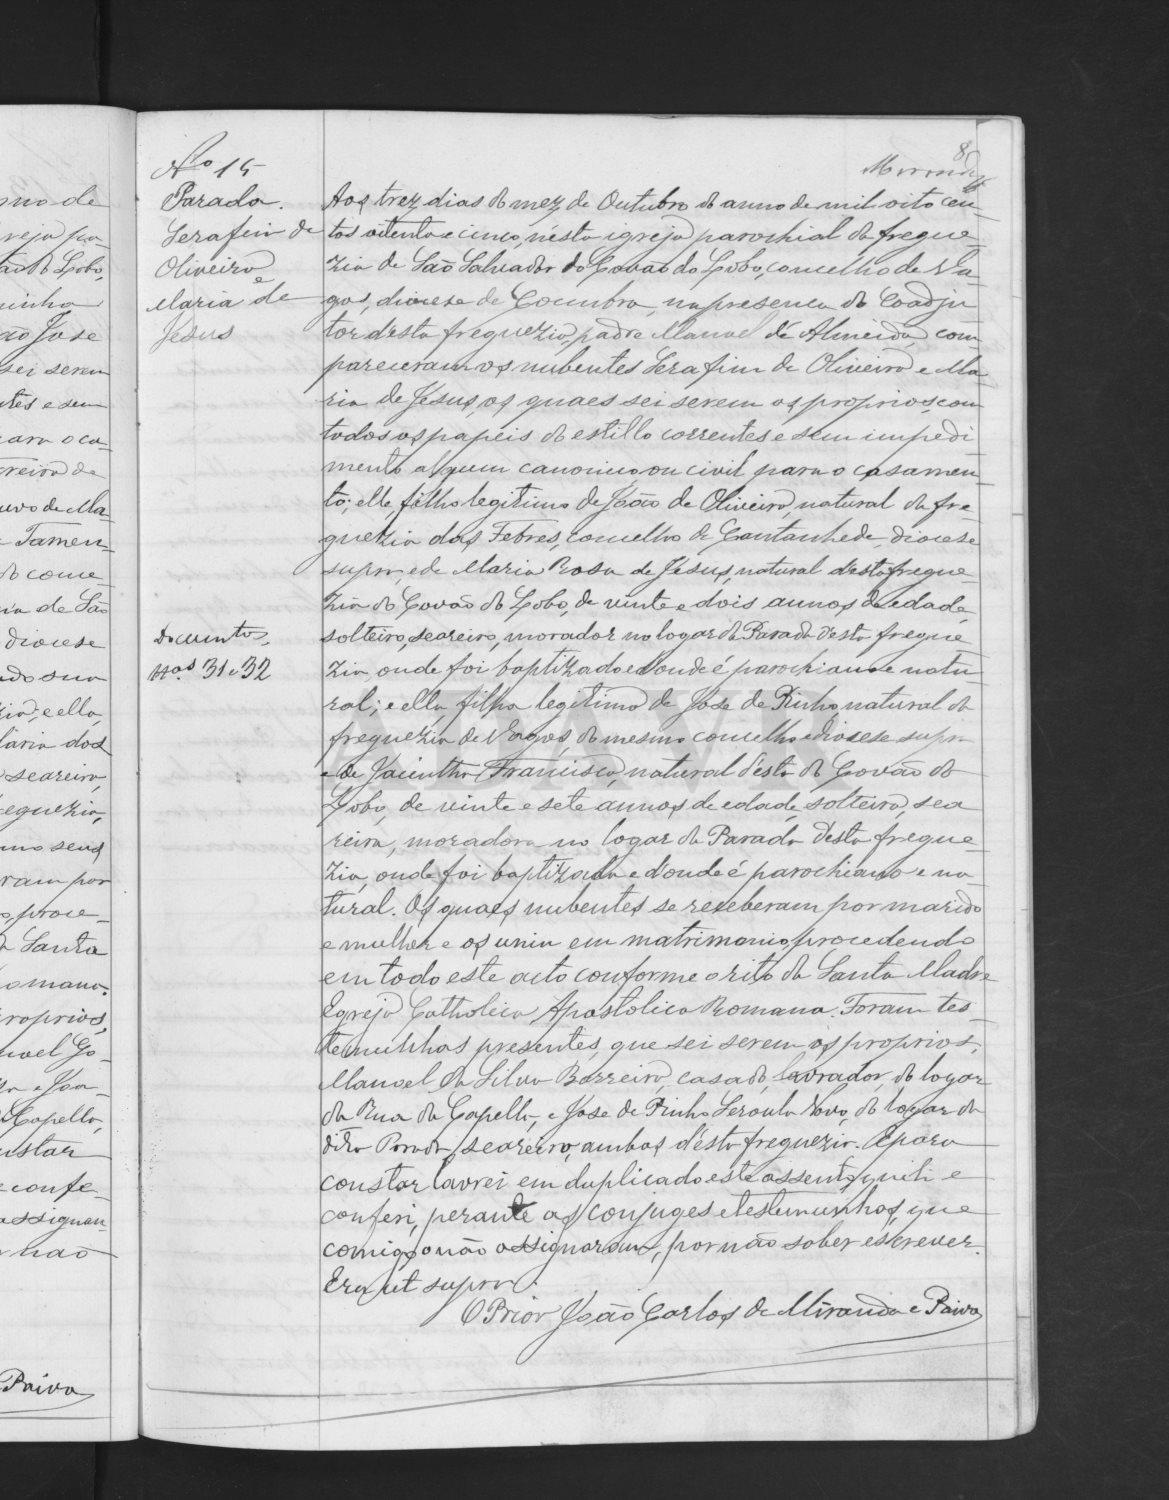 mo de
reja pa-
ão do Lobo,
inha
ao Jose
sei serem
tes e sem
ara o ca-
reira de
uvo de Ma-
Tamen-
do conce-
ia de São
diocese
ado sua
zia; e ella,
laria dos
seareira,
eguezia,
mo seus
ram por
proce-
Santa
omana.
roprios,
noel Go-
e Joa-
Capella,
nstar
e confe-
assignam
não
Paiva
No 15
Parada.
Serafim de
Oliveira
e
Maria de
Jesus
Documentos
nos 31 e 32
8
Miranda
Aos trez dias do mez de Outubro do anno de mil oito cen-
tos oitenta e cinco, n'esta igreja parochial da fregue-
zia de São Salvador do Covão do Lobo, concelho de Va-
gos, diocese de Coimbra, na presenca do Coadju
tor desta freguezia, padre Manoel de Almeida com-
pareceram os nubentes Serafim de Oliveira e Ma-
ria de Jesus, os quaes sei serem os proprios, com
todos os papeis do estillo correntes e sem impedi
mento algum canonico ou civil para o casamen-
to; elle, filho legitimo de João de Oliveira, natural da fre-
guezia das Febres, concelho de Cantanhede, diocese
supra, e de Maria Rosa de Jesus, natural d'esta fregue-
zia do Covão do Lobo, de vinte e dois annos de edade,
solteiro, seareiro, morador no logar da Parada desta fregue
zia, onde foi baptizado e donde é parochiano e natu-
ral; e ella, filha legitima de Jose de Pinho, natural da
freguezia de Vagos, do mesmo concelho e diocese supra
e de Jacintha Francisca, natural d'esta do Covão do
Lobo, de vinte e sete annos de edade, solteira, sea
reira, moradora no logar da Parada desta fregue-
zia, onde foi baptizada e d'onde é parochiana e na-
tural. Os quaes nubentes se receberam por marido
e mulher e os uniu em matrimonio, procedendo
em todo este acto conforme o rito da Santa Madre
Egreja Catholica Apostolica Romana. Foram tes-
temunhas presentes, que sei serem os proprios,
Manoel da Silva Barreira, casado, lavrador, do logar
da Rua da Capella, e Jose de Pinho Seroula Novo, do logar da
dita Parada, seareiro, ambos d'esta freguezia. E para
constar lavrei em duplicado este assento, que li e
conferi, perante os conjuges e testemunhas, que
comigo não assignaram, por não saber escrever.
Era ut supra.
O Prior João Carlos de Miranda e Paiva
ADAVR